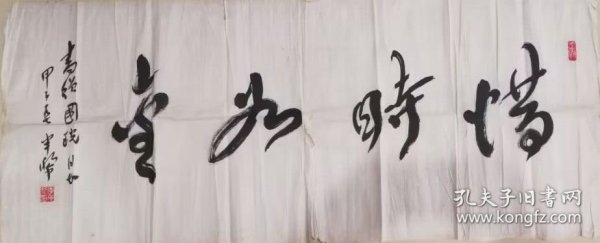 惜時如金
書给國琰日
甲子春
孔夫子旧书网
www.kongfz.com